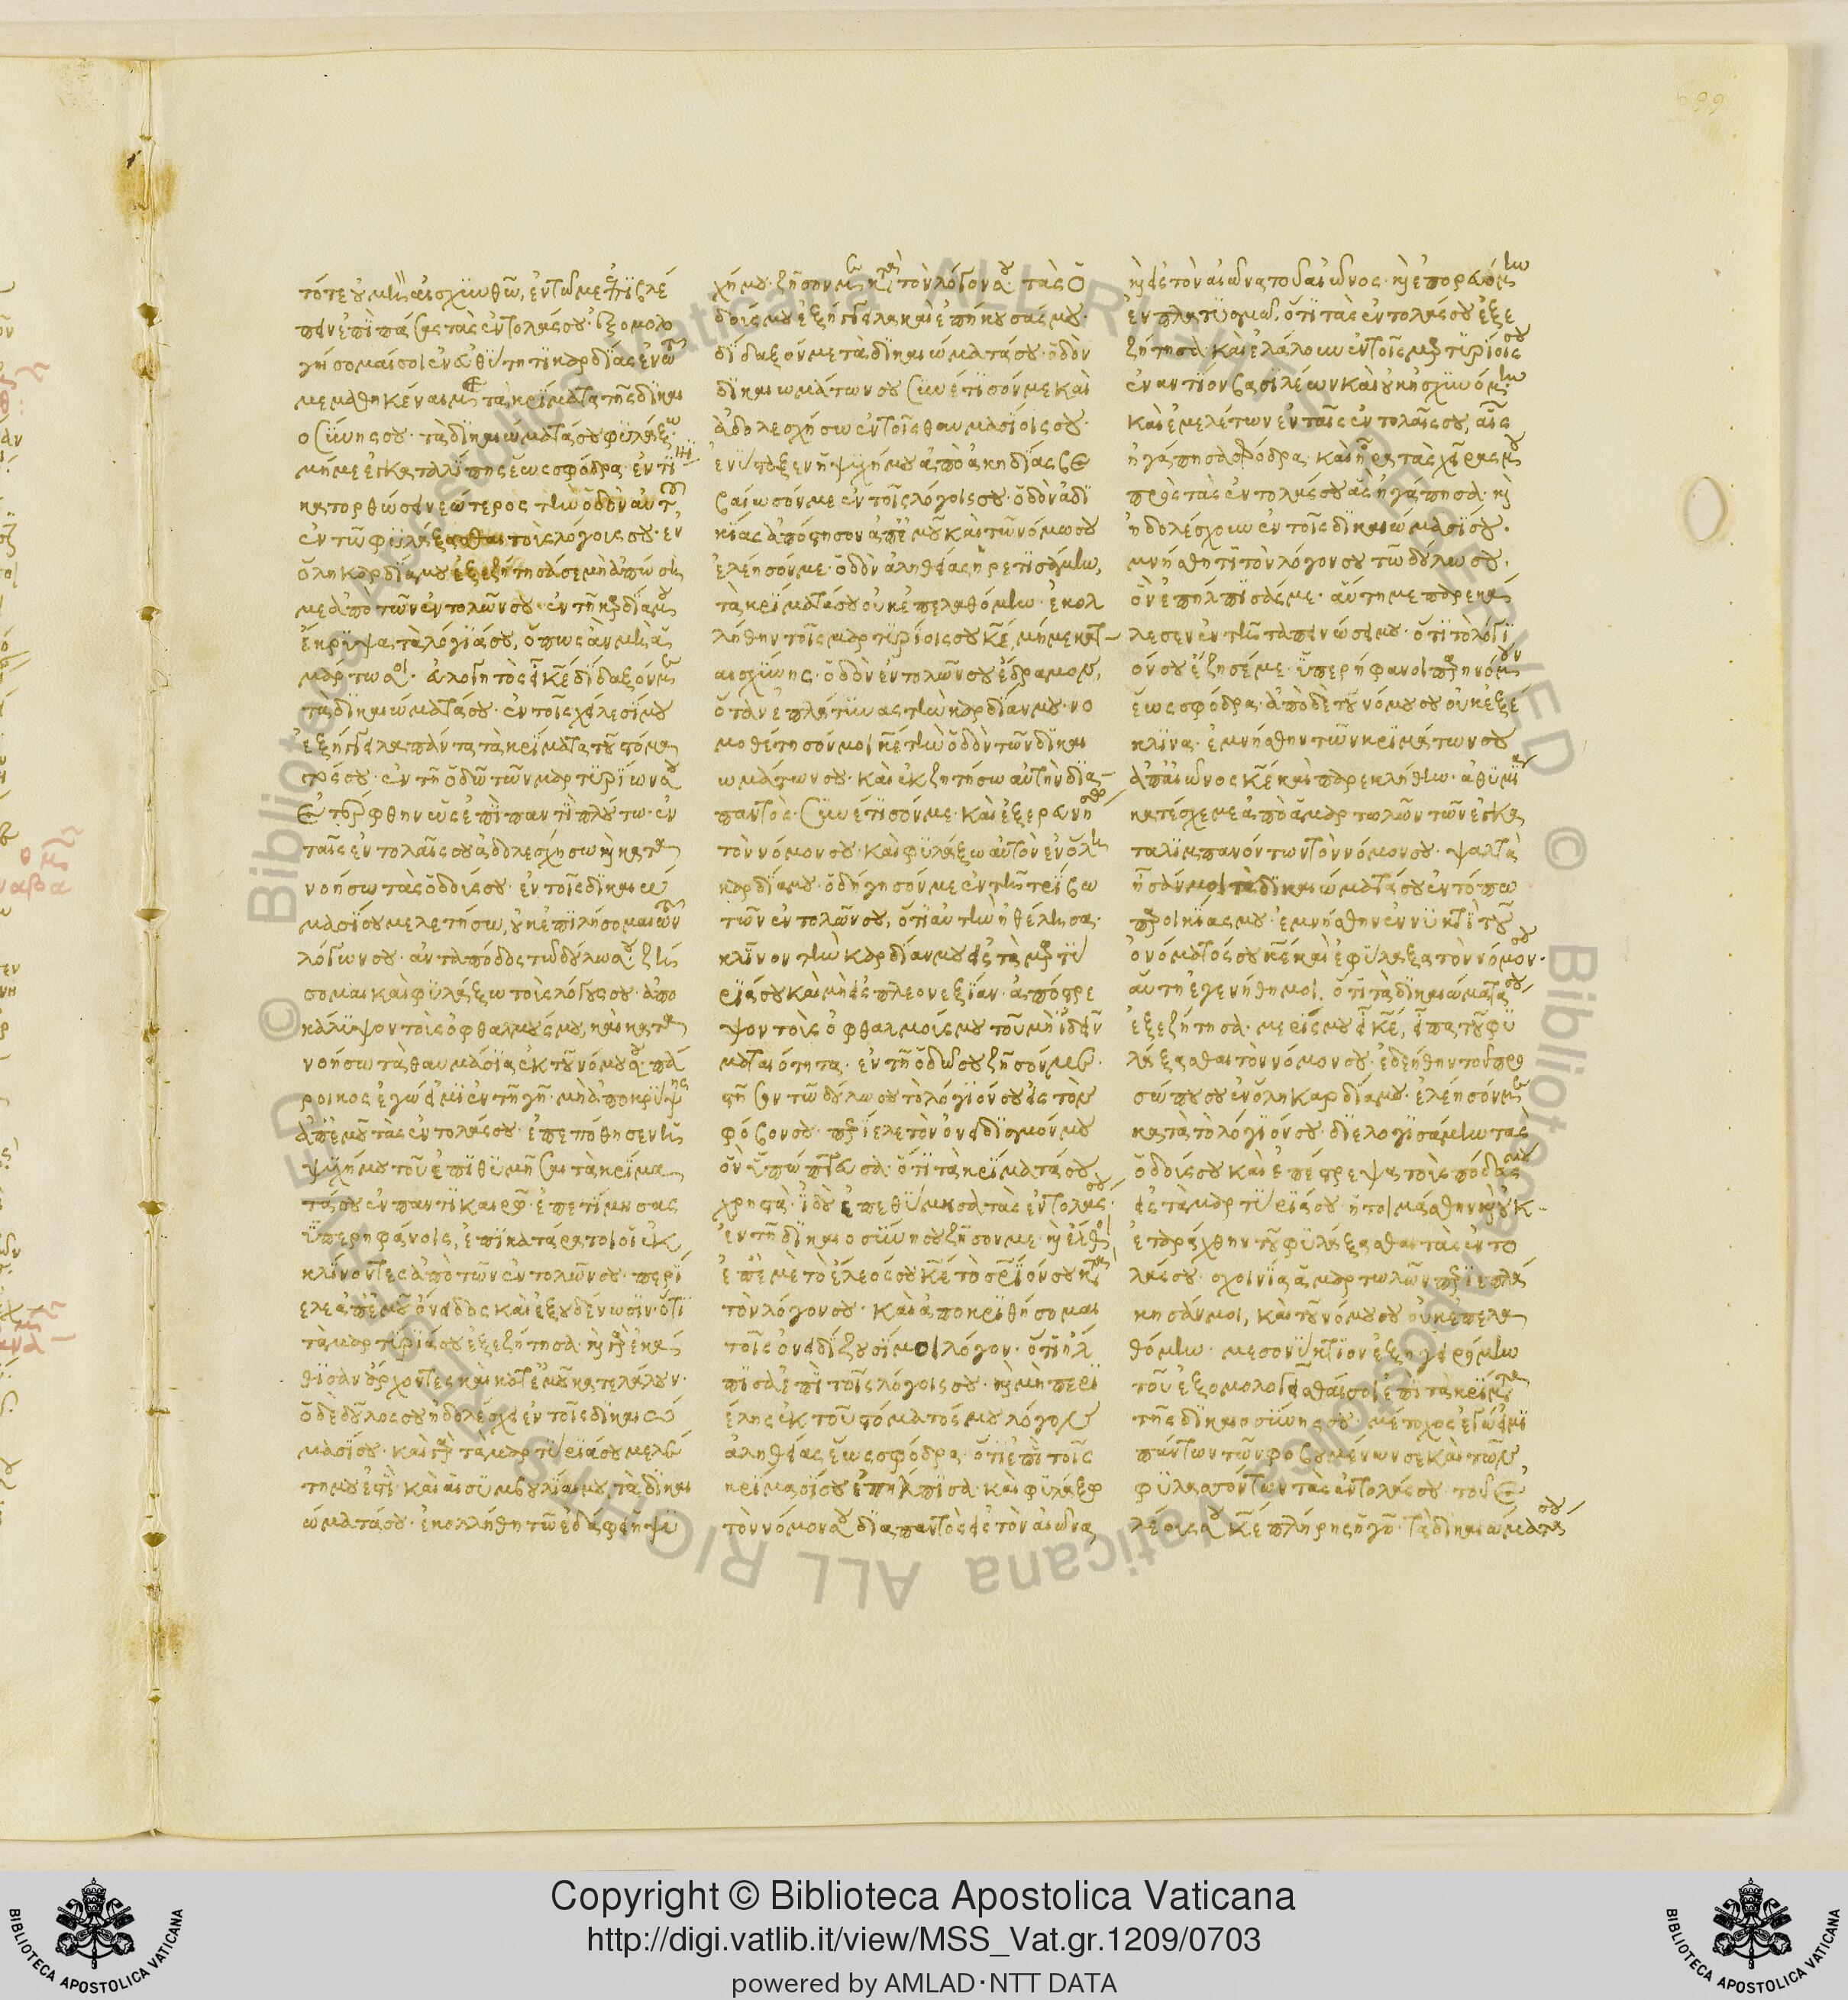 τότε οὐ μὴ αἰσχυνθῶ, ἐν τῶ με ἐπιβλέ
πειν ἐπὶ πάσας τὰς ἐντολάς σου· ἐξομολο
γήσομαί σοι ἐν εὐθύτητι καρδίας ἐν τῶ
μεμαθηκέναι με τὰ κρίματα τῆς δικαι
οσύνης σου· τὰ δικαιώματά σου φυλάξω
μή με ἐγκαταλίπης ἕως σφόδρα· ἐν τίνι
κατορθώσει νεώτερος τὴν ὁδὸν αὐτοῦ,
ἐν τῶ φυλάξασθαι τοὺς λόγους σου· ἐν
ὅλη καρδία μου ἐξεζήτησά σε μὴ ἀπώση
με ἀπὸ τῶν ἐντολῶν σου· ἐν τῆ καρδία μου
ἔκρυψα τὰ λόγιά σου, ὅπως ἂν μὴ ἁ
μάρτω σοι· εὐλογητὸς εἶ κε δίδαξόν με
τὰ δικαιώματά σου· ἐν τοῖς χείλεσί μου
ἐξήγγειλα πάντα τὰ κρίματα τοῦ στόμα
τός σου· ἐν τῆ ὁδῶ τῶν μαρτυρίων σου
ἐτέρφθην ὡς ἐπὶ παντὶ πλούτω· ἐν
ταῖς ἐντολαῖς σου ἀδολεσχήσω καὶ κατα
νοήσω τὰς ὁδούς σου· ἐν τοῖς δικαιώ
μασί σου μελετήσω, οὐκ ἐπιλήσομαι τῶν
λόγων σου· ἀνταπόδος τῶ δούλω σου· ζή
σομαι καὶ φυλάξω τοὺς λόγους σου· ἀπο
κάλυψον τοὺς ὀφθαλμούς μου, καὶ κατα
νοήσω τὰ θαυμάσια ἐκ τοῦ νόμου σου· πά
ροικος ἐγώ εἰμι ἐν τῆ γῆ· μὴ ἀποκρύψης
ἀπ' ἐμοῦ τὰς ἐντολάς σου· ἐπεπόθησεν ἡ
ψυχή μου τοῦ ἐπιθυμῆσαι τὰ κρίμα
τά σου ἐν παντὶ καιρῶ· ἐπετίμησας
ὑπερηφάνοις, ἐπικατάρατοι οἱ ἐκ
κλίνοντες ἀπὸ τῶν ἐντολῶν σου· περί
ελε ἀπ' ἐμοῦ ὄνειδος καὶ ἐξουδένωσιν· ὅτι
τὰ μαρτύριά σου ἐξεζήτησα· καὶ γὰρ ἐκά
θισαν ἄρχοντες καὶ κατ' ἐμοῦ κατελάλουν·
ὁ δὲ δοῦλος σου ἠδολέσχει ἐν τοῖς δικαιώ
μασί σου· καὶ γὰρ τὰ μαρτύριά σου μελέ
τη μου ἐστὶ· καὶ αἱ συμβουλίαι μου τὰ δικαι
ώματά σου· ἐκολλήθη τῶ ἐδάφει ἡ ψυ
χή μου· ζῆσόν με κατὰ τὸν λόγον σου· τὰς ὁ
δούς μου ἐξήγγειλα καὶ ἐπήκουσάς μου·
δίδαξόν με τὰ δικαιώματά σου· ὁδὸν
δικαιωμάτων σου συνέτισόν με καὶ
ἀδολεσχήσω ἐν τοῖς θαυμασίοις σου·
ἐνύσταξεν ἡ ψυχή μου ἀπὸ ἀκηδίας βε
βαίωσόν με ἐν τοῖς λόγοις σου· ὁδὸν ἀδι
κίας ἀπόστησον ἀπ' ἐμοῦ καὶ τῶ νόμω σου
ἐλέησόν με· ὁδὸν ἀληθείας ἡρετισάμην,
τὰ κρίματά σου οὐκ ἐπελαθόμην· ἐκολ
λήθην τοῖς μαρτυρίοις σου κε, μή με κατ
αισχύνης· ὁδὸν ἐντολῶν σου ἔδραμον,
ὅταν ἐπλάτυνας τὴν καρδίαν μου· νο
μοθέτησόν μοι κε τὴν ὁδὸν τῶν δικαι
ωμάτων σου· καὶ ἐκζητήσω αὐτὴν δια
παντὸς· συνέτισόν με· καὶ ἐξεραυνήσω
τὸν νόμον σου· καὶ φυλάξω αὐτὸν ἐν ὅλη
καρδία μου· ὁδήγησόν με ἐν τῆ τρίβω
τῶν ἐντολῶν σου, ὅτι αὐτὴν ἠθέλησα·
κλῖνον τὴν καρδίαν μου εἰς τὰ μαρτύ
ριά σου καὶ μὴ εἰς πλεονεξίαν· ἀπόστρε
ψον τοὺς ὀφθαλμούς μου τοῦ μὴ ἰδεῖν
ματαιότητα· ἐν τῆ ὁδῶ σου ζῆσόν με·
στῆσον τῶ δούλω σου τὸ λόγιόν σου εἰς τὸν
φόβον σου· περίελε τὸν ὀνειδισμόν μου
ὃν ὑπώπτευσα· ὅτι τὰ κρίματά σου
χρηστά· ἰδοὺ ἐπεθύμησα τὰς ἐντολάς σου·
ἐν τῆ δικαιοσύνη σου ζῆσόν με· καὶ ἔλθοι
ἐπ' ἐμὲ τὸ ἔλεός σου κε τὸ σωτήριόν σου κατὰ
τὸν λόγον σου· καὶ ἀποκριθήσομαι
τοῖς ὀνειδίζουσί μοι λόγον· ὅτι ἤλ
πισα ἐπὶ τοῖς λόγοις σου· καὶ μὴ περι
έλης ἐκ τοῦ στόματός μου λόγον
ἀληθείας ἕως σφόδρα· ὅτι ἐπὶ τοῖς
κρίμασί σου ἐπήλπισα· καὶ φυλάξω
τὸν νόμον σου διαπαντὸς εἰς τὸν αἰῶνα
καὶ εἰς τὸν αἰῶνα τοῦ αἰῶνος· καὶ ἐπορευόμην
ἐν πλατυσμῶ, ὅτι τὰς ἐντολάς σου ἐξε
ζήτησα· καὶ ἐλάλουν ἐν τοῖς μαρτυρίοις σου
ἐναντίον βασιλέων καὶ οὐκ ἠσχυνόμην·
καὶ ἐμελέτων ἐν ταῖς ἐντολαῖς σου, αἷς
ἠγάπησα σφόδρα· καὶ ἦρα τὰς χεῖράς μου
πρὸς τὰς ἐντολάς σου ἃς ἠγάπησα· καὶ
ἠδολέσχουν ἐν τοῖς δικαιώμασί σου·
μνήσθητι τὸν λόγον σου τῶ δούλω σου,
ὃν ἐπήλπισάς με· αὕτη με παρεκά
λεσεν ἐν τῆ ταπεινώσει μου· ὅτι τὸ λόγι
όν σου ἔζησέ με· ὑπερήφανοι παρηνόμουν
ἕως σφόδρα· ἀπὸ δὲ τοῦ νόμου σου οὐκ ἐξέ
κλινα· ἐμνήσθην τῶν κριμάτων σου
ἀπ' αἰῶνος κε καὶ παρεκλήθην· ἀθυμία
κατέσχε με ἀπὸ ἁμαρτωλῶν τῶν ἐγκα
ταλιμπανόντων τὸν νόμον σου· ψαλτὰ
ἦσάν μοι τὰ δικαιώματά σου ἐν τόπω
παροικίας μου· ἐμνήσθην ἐν νυκτὶ τοῦ
ὀνόματός σου κε καὶ ἐφύλαξα τὸν νόμον σου·
αὕτη ἐγενήθη μοι, ὅτι τὰ δικαιώματά σου
ἐξεζήτησα· μερίς μου εἶ κε, εἶπα τοῦ φυ
λάξασθαι τὸν νόμον σου· ἐδεήθην τοῦ προ
σώπου σου ἐν ὅλη καρδία μου· ἐλέησόν με
κατὰ τὸ λόγιόν σου· διελογισάμην τὰς
ὁδούς σου καὶ ἐπέστρεψα τοὺς πόδας μου
εἰς τὰ μαρτύριά σου· ἡτοιμάσθην καὶ οὐκ
ἐταράχθην τοῦ φυλάξασθαι τὰς ἐντο
λάς σου· σχοινία ἁμαρτωλῶν περιεπλά
κησάν μοι, καὶ τοῦ νόμου σου οὐκ ἐπελα
θόμην· μεσονύκτιον ἐξηγειρόμην
τοῦ ἐξομολογεῖσθαί σοι ἐπὶ τὰ κρίματα
τῆς δικαιοσύνης σου· μέτοχος ἐγώ εἰμι
πάντων τῶν φοβουμένων σε καὶ τῶν
φυλασσόντων τὰς ἐντολάς σου· τοῦ ἐ
λέους σου κε πλήρης ἡ γῆ· τὰ δικαιώματά σου
99
Copyright © Biblioteca Apostolica Vaticana
http://digi.vatlib.it/view/MSS_Vat.gr.1209/0703
powered by AMLAD·NTT DATA
BIBLIOTECA APOSTOLICA VATICANA
BIBLIOTECA APOSTOLICA VATICANA
© Biblioteca Apostolica Vaticana ALL RIGHTS RESERVED © Biblioteca Apostolica Vaticana ALL RIGHTS RESERVED